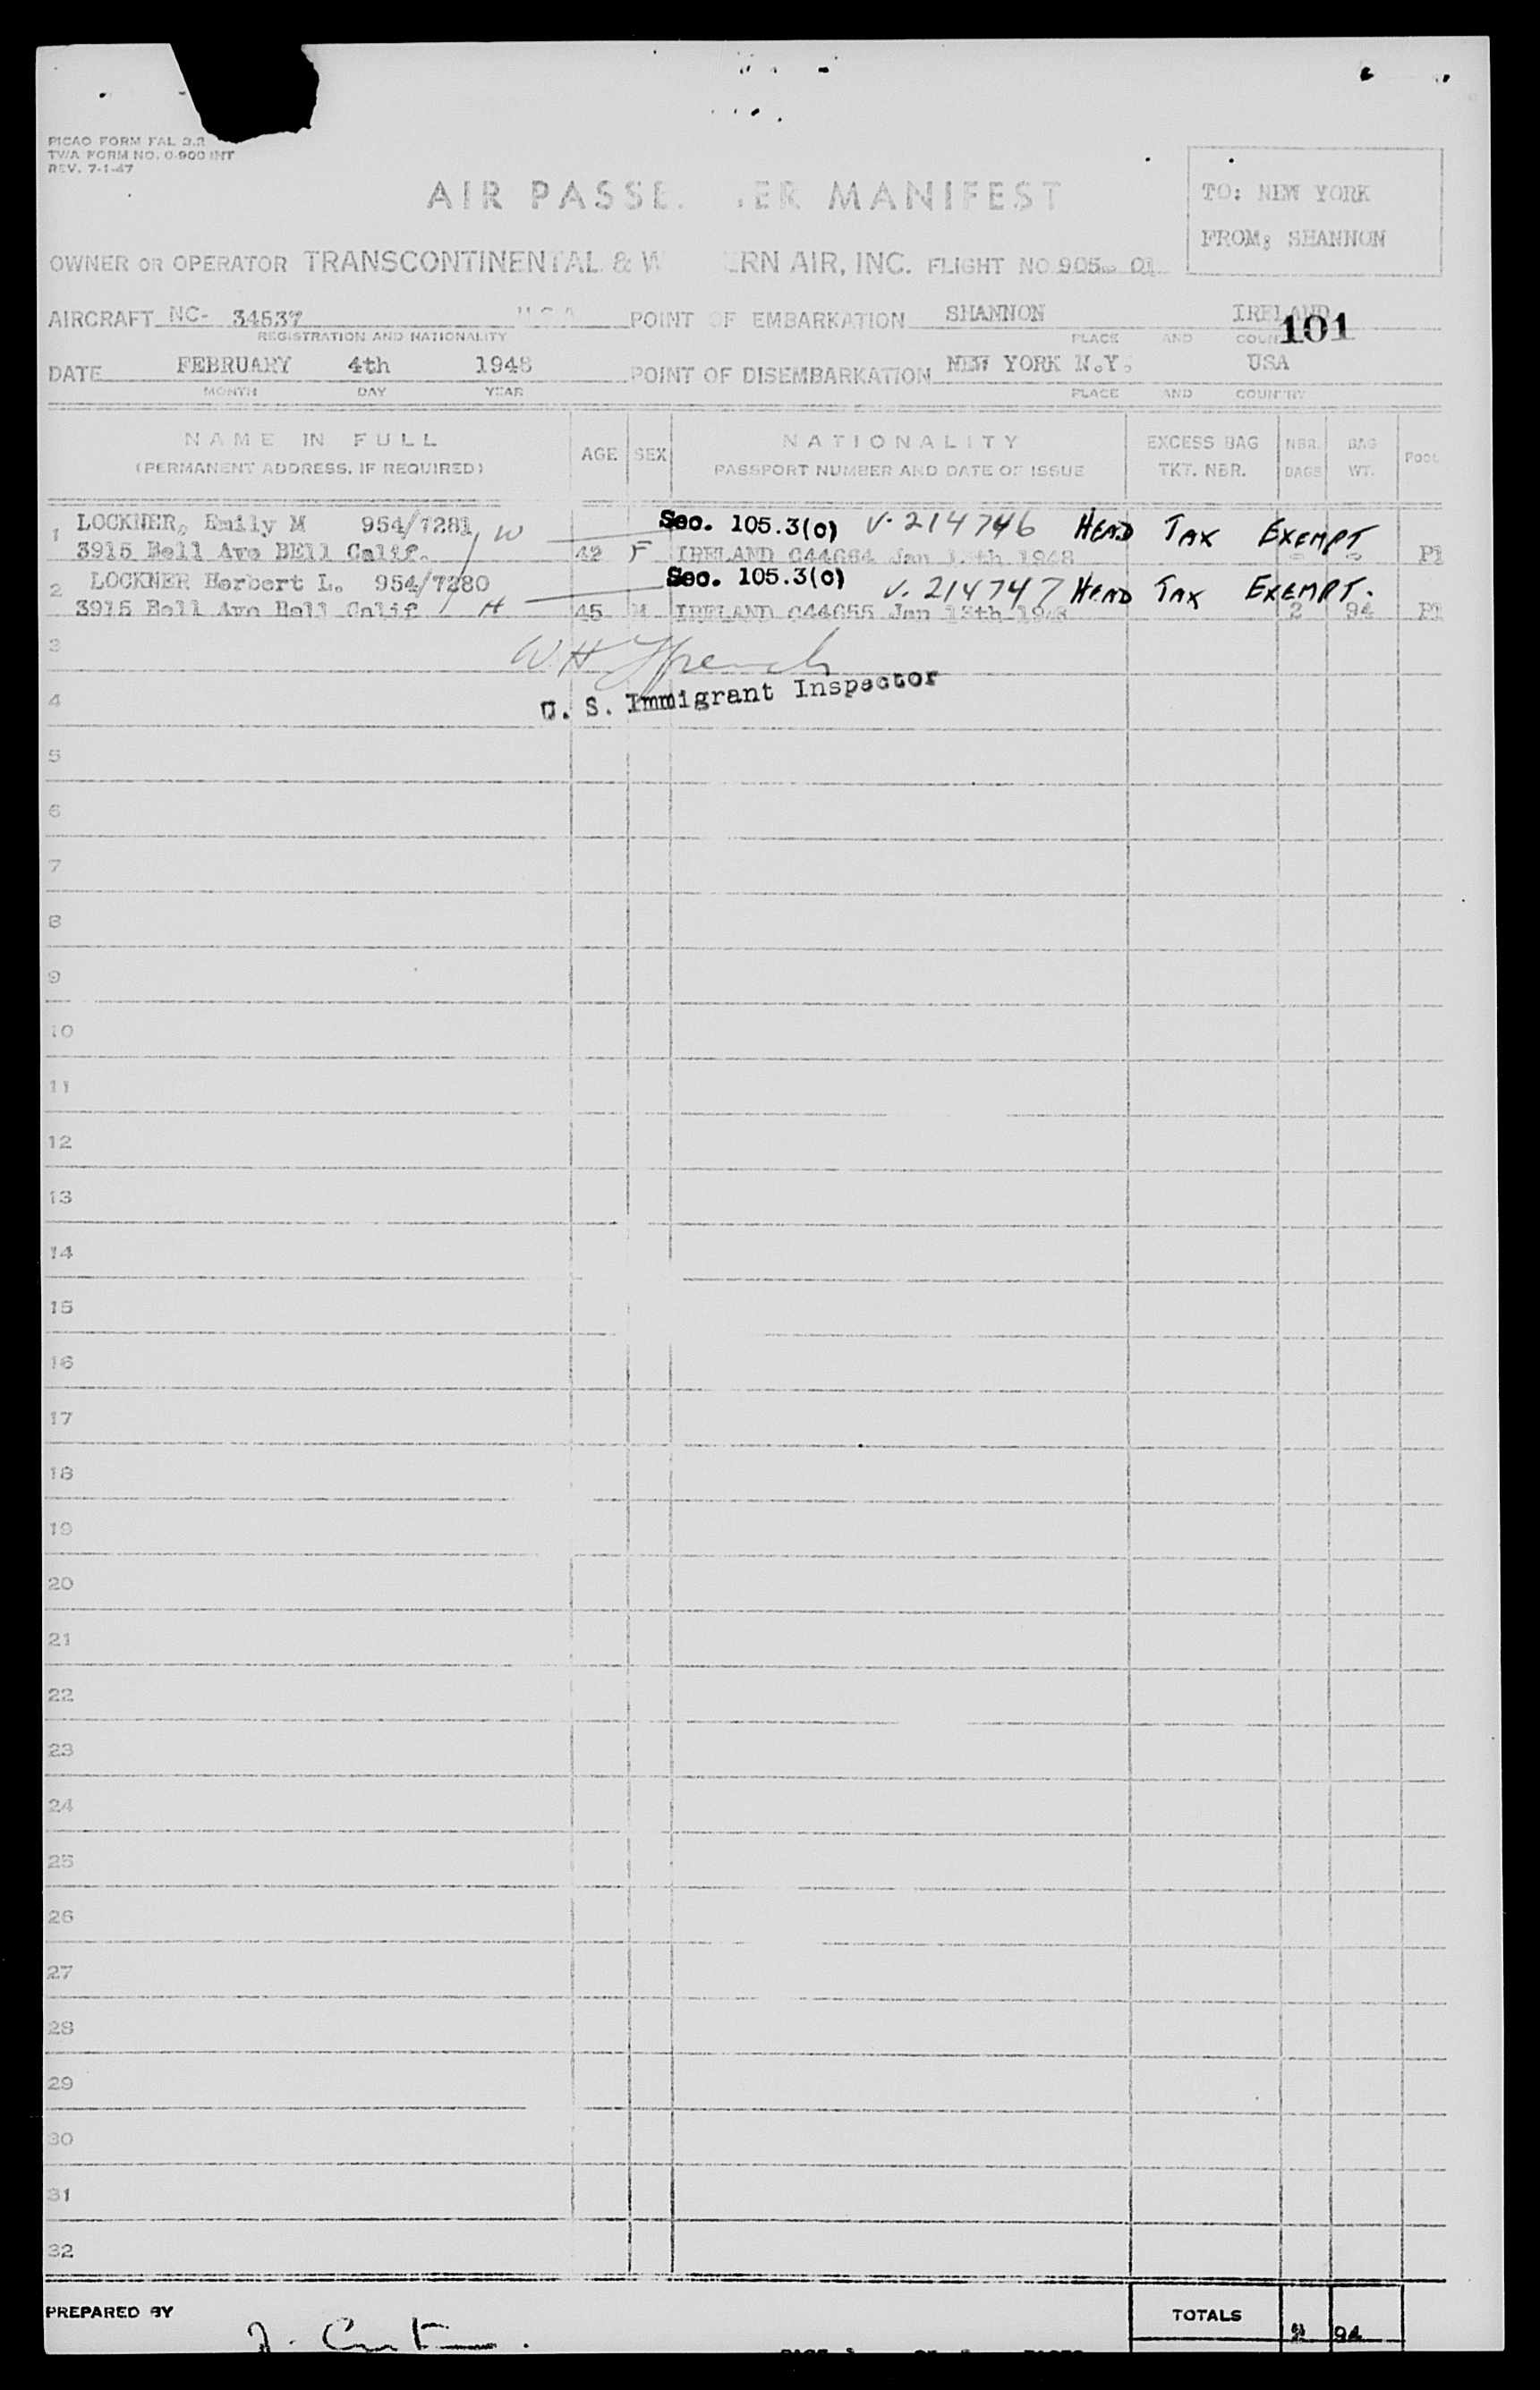 PICAO FORM FAL 2.2
TWA FORM NO. 0-900 INT
REV. 7-1-47
AIR PASSE ER MANIFEST
TO: NEW YORK
FROM; SHANNON
OWNER OR OPERATOR TRANSCONTINENTAL & W ERN AIR, INC. FLIGHT NO 905 01
AIRCRAFT NC- 34537 POINT OF EMBARKATION SHANNON IRELAND
REGISTRATION AND NATIONALITY PLACE AND COUN
101
DATE FEBRUARY 4th 1948 POINT OF DISEMBARKATION NEW YORK N.Y. USA
MONTH DAY YEAR PLACE AND COUNTRY
NAME IN FULL AGE SEX NATIONALITY EXCESS BAG NBR. BAG POOL
(PERMANENT ADDRESS, IF REQUIRED) PASSPORT NUMBER AND DATE OF ISSUE TKT. NBR. BAGS WT.
1 LOCKNER, Emily M 954/7281 W Sec. 105.3(c) V. 214746 HEAD TAX EXEMPT
3915 Bell Ave BEll Calif. 42 F IRELAND Jan 1948 P1
2 LOCKNER Herbert L. 954/7280 Sec. 105.3(c) V. 214747 HEAD TAX EXEMPT.
3915 Bell Ave Bell Calif H 45 M IRELAND C44655 Jan 13th 1948 2 94 P1
3 W H French
4 U. S. Immigrant Inspector
5
6
7
8
9
10
11
12
13
14
15
16
17
18
19
20
21
22
23
24
25
26
27
28
29
30
31
32
PREPARED BY TOTALS 94